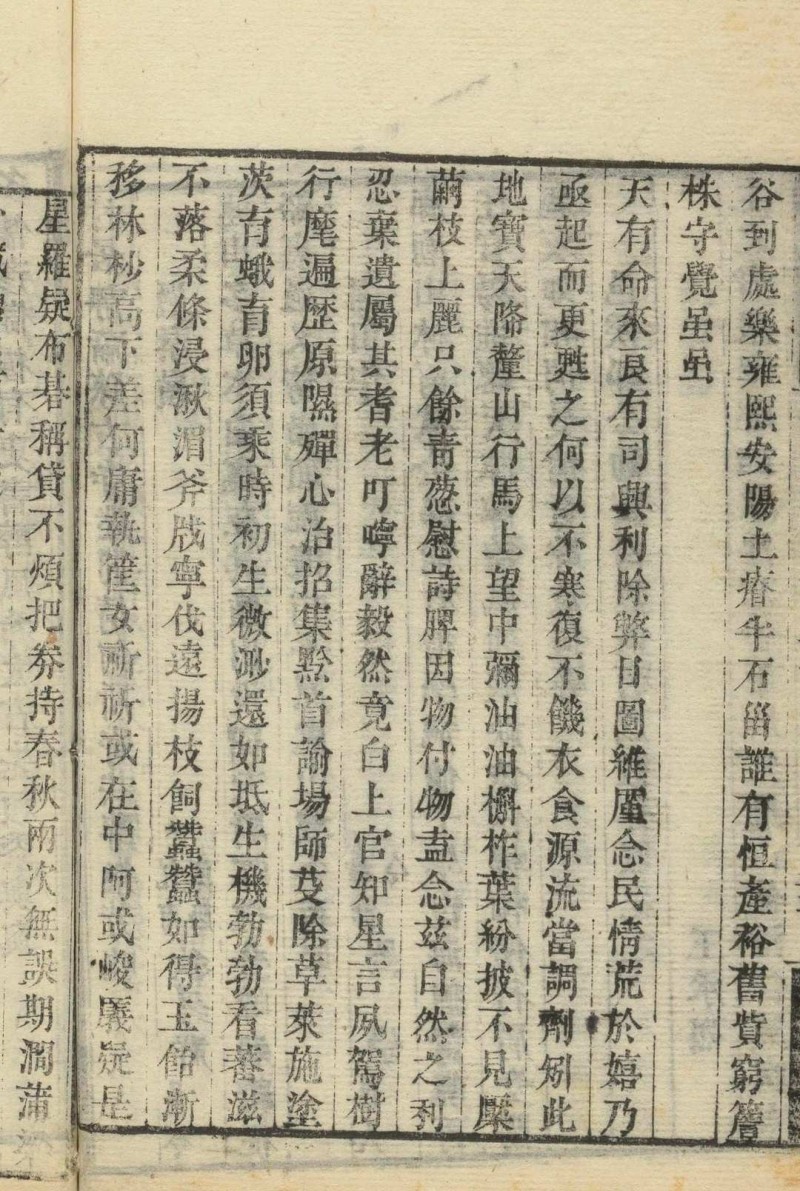 谷到處樂雍熙安陽土瘠牛石菑誰有恒產裕舊貲窮簷
株守覺蚩蚩
天有命來良有司興利除弊日圖維厪念民情荒於嬉乃
亟起而更甦之何以不寒復不饑衣食源流當調劑矧此
地寶天降釐山行馬上望中彌油油槲柞葉紛披不見檿
繭枝上麗只餘青蔥慰詩脾因物付物盍念茲自然之利
忍棄遺屬其耆老叮嚀辭毅然竟白上官知星言夙駕樹
行麾遍歷原隰殫心治招集黔首諭場師芟除草萊施塗
茨育蛾育卵須乘時初生微渺還如坻生機勃勃看蕃滋
不落柔條浸湫湄斧戕寧伐遠揚枝飼蠶蠶如得玉飴漸
移林杪高下差何庸執筐女祈祈或在中阿或峻嶬疑是
星羅疑布碁稱貸不煩把券持春秋兩次無誤期澗蒲